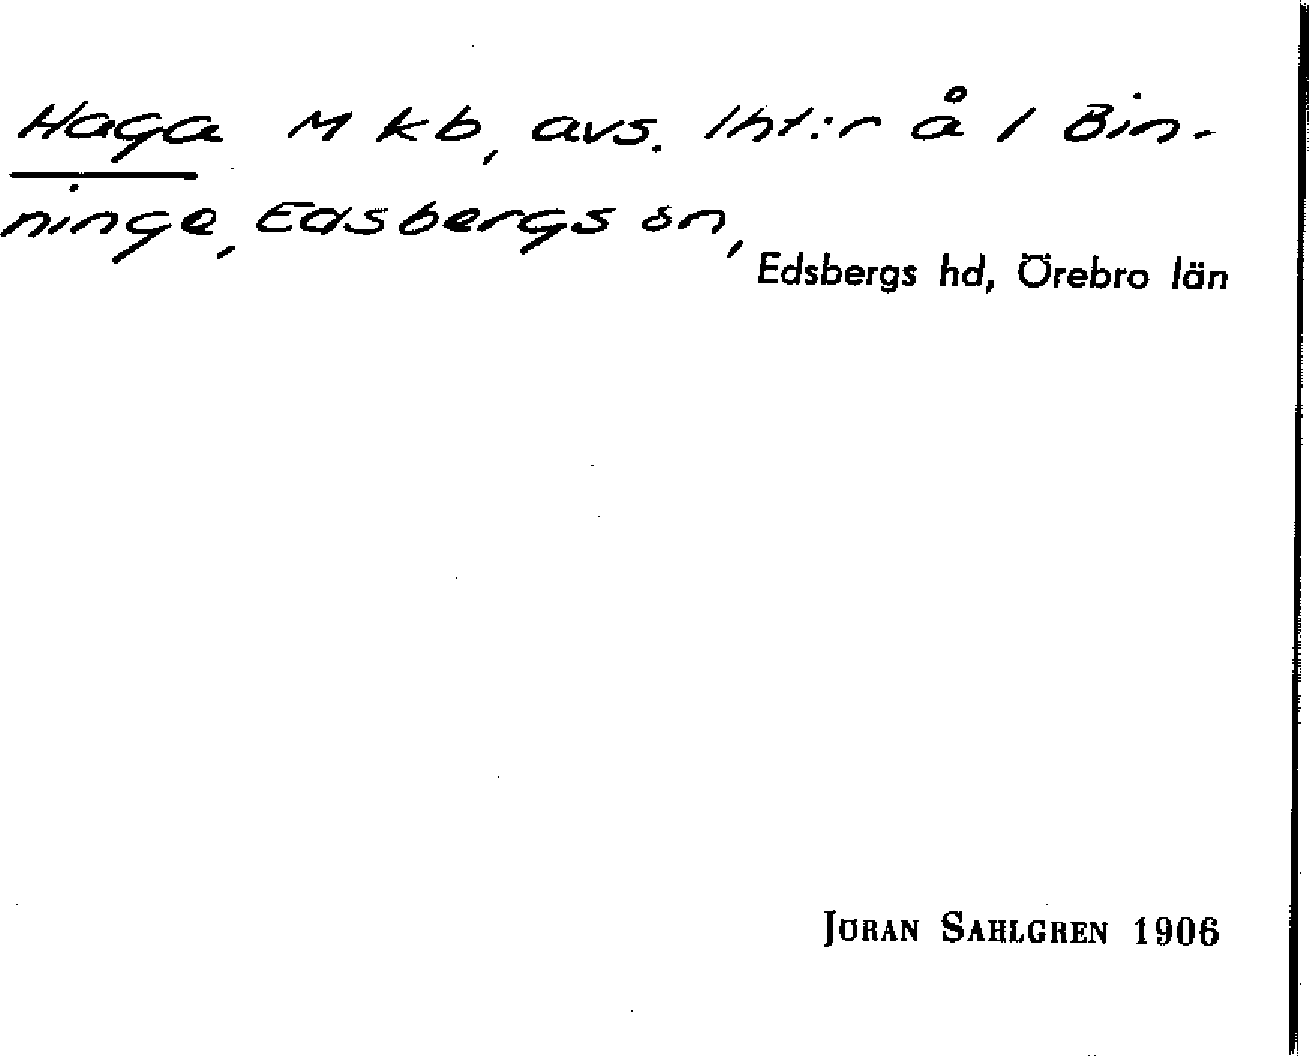 Haga M kb, avs. lht:r å 1 Bin-
ninge, Edsbergs sn,
Edsbergs hd, Örebro län
JÖRAN SAHLGREN 1906